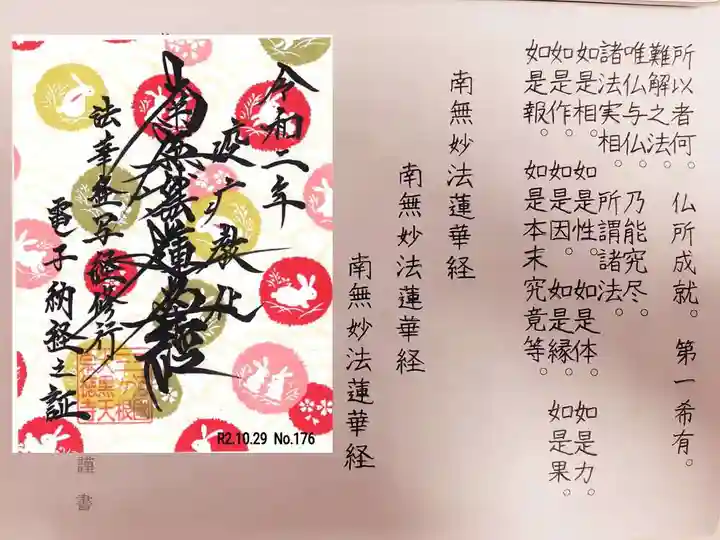 所以者何。仏所成就。第一希有。
難解之法。
唯仏与仏。乃能究尽。
諸法実相。所謂諸法。
如是相。如是性。如是体。如是力。
如是作。如是因。如是縁。如是果。
如是報。如是本末究竟等。
南無妙法蓮華経
南無妙法蓮華経
南無妙法蓮華経
令和二年
疫病救止
南無妙法蓮華経
法華経写経修行
電子納経之証
R2.10.29 No.176
謹書